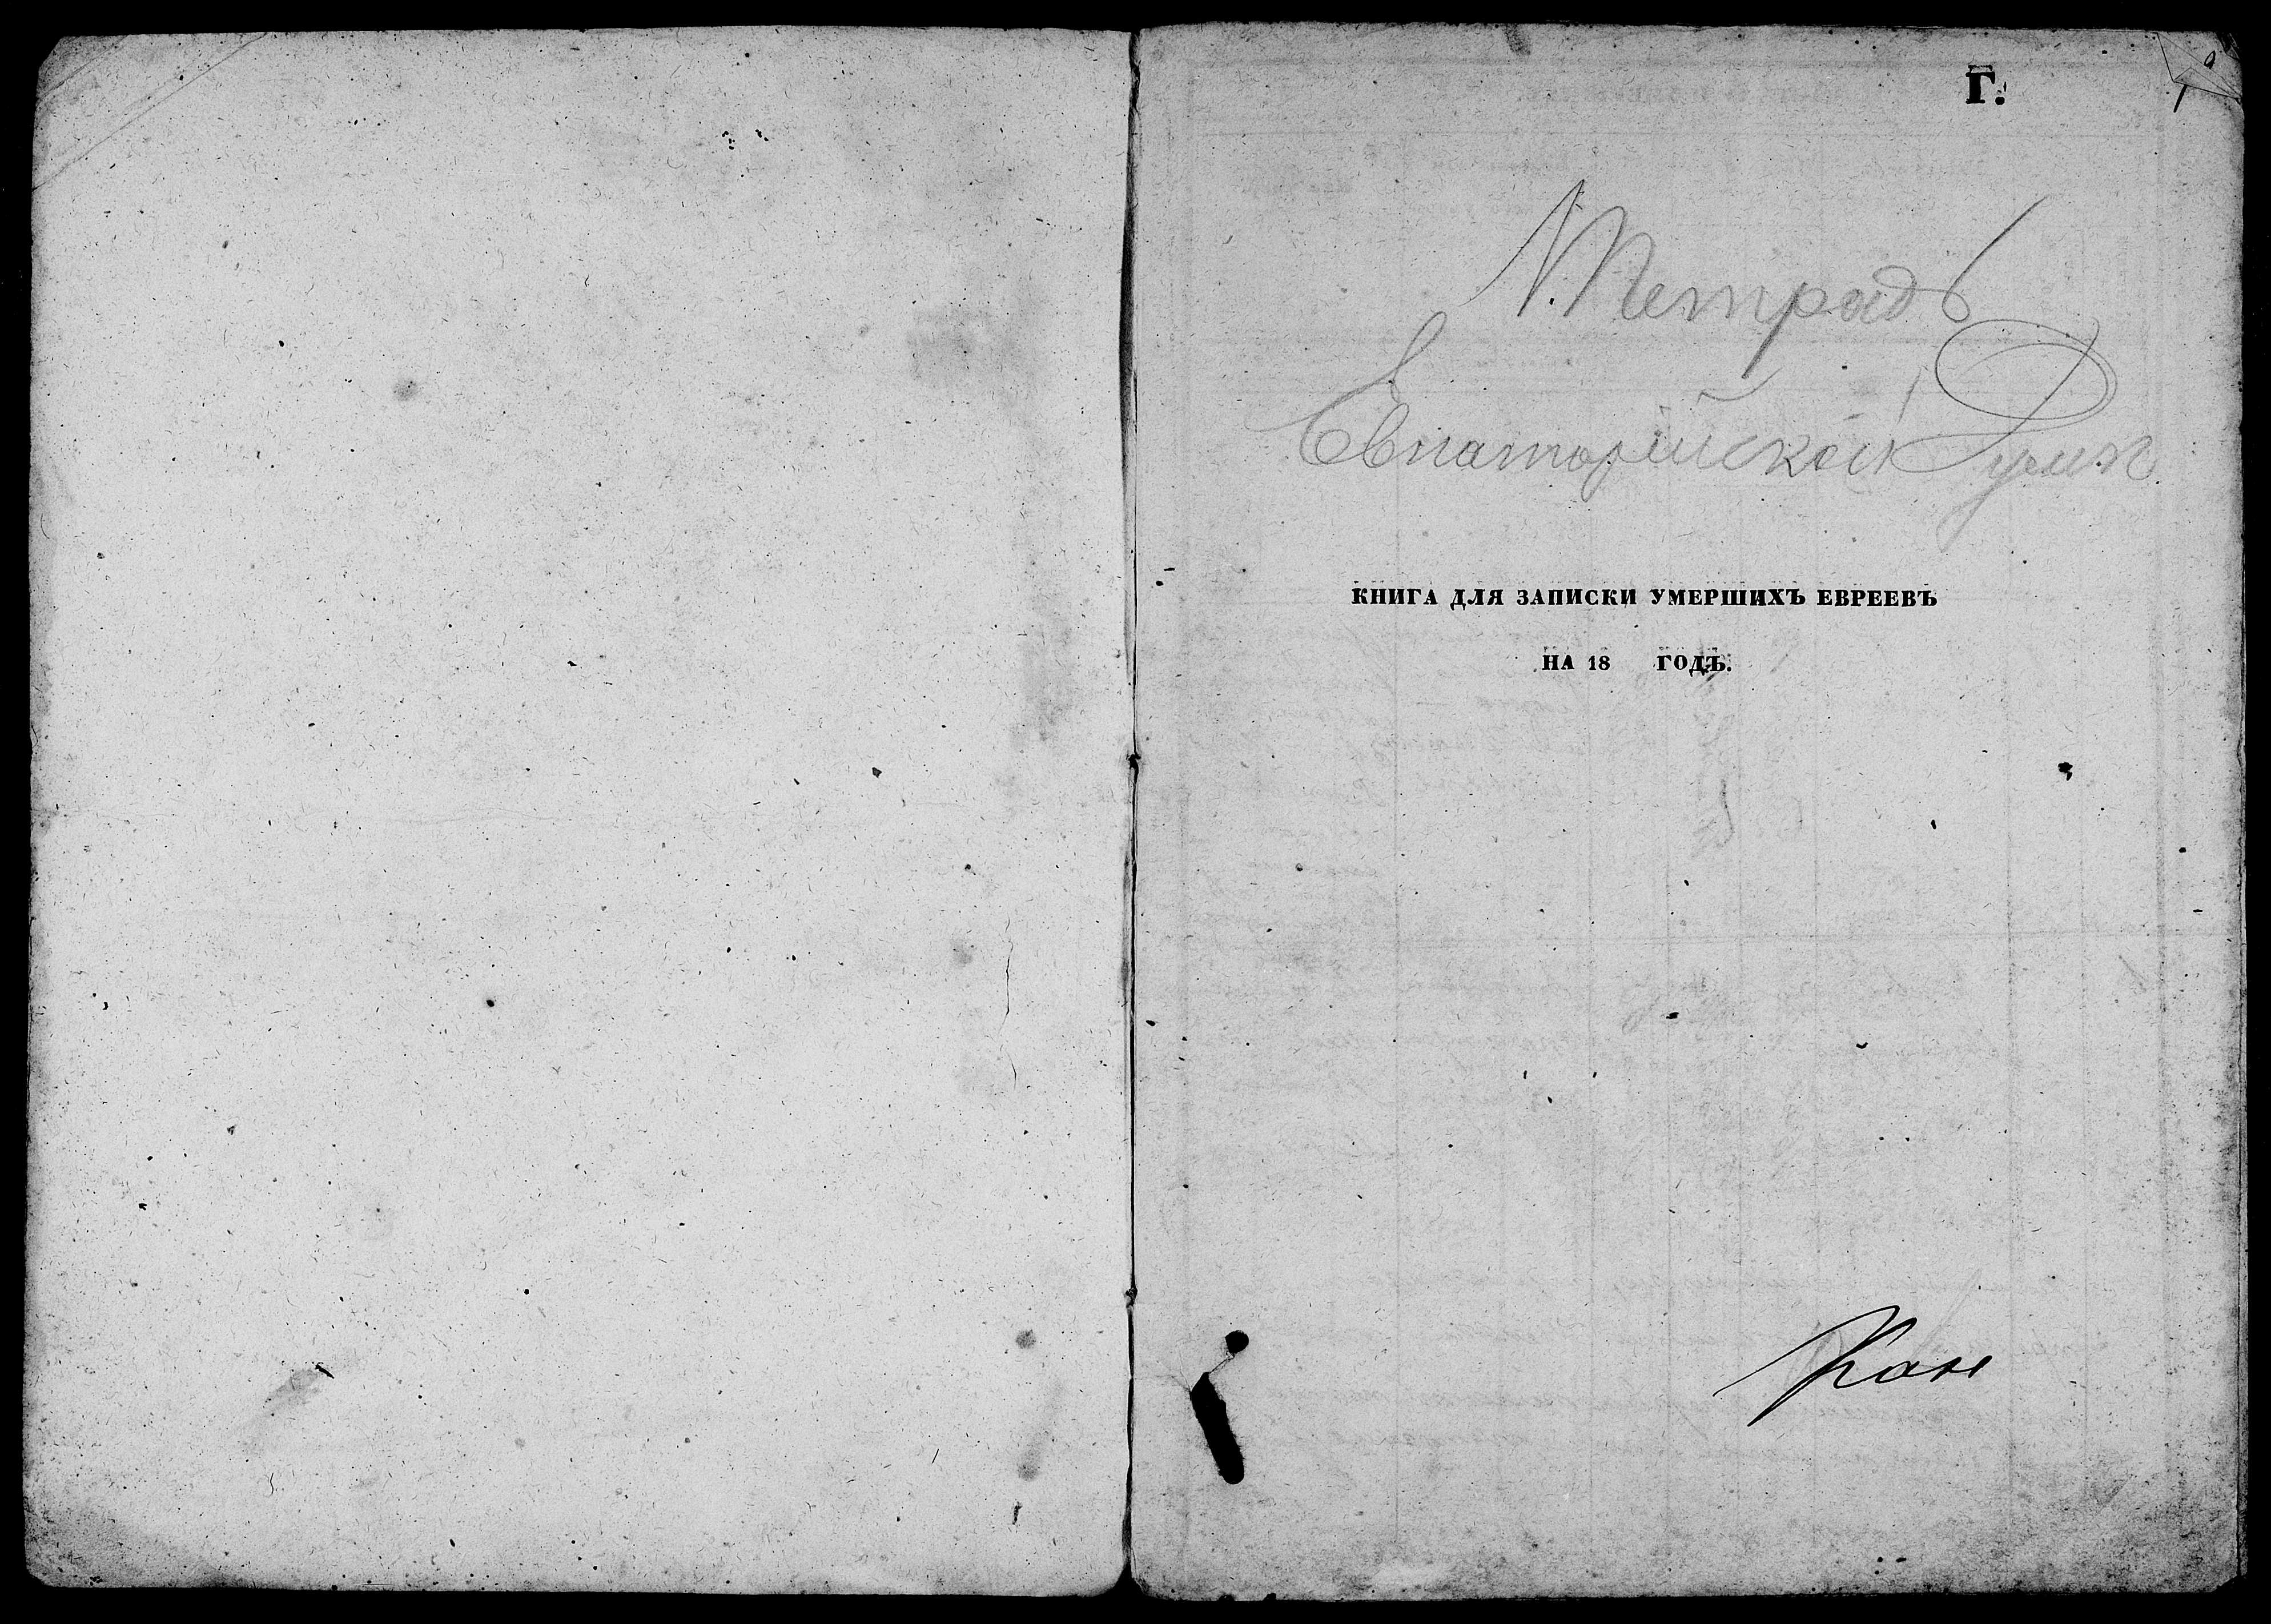 Г.
1
Тетрадь
Евпаторійской Думы
КНИГА ДЛЯ ЗАПИСКИ УМЕРШИХЪ ЕВРЕЕВЪ
НА 18 ГОДЪ.